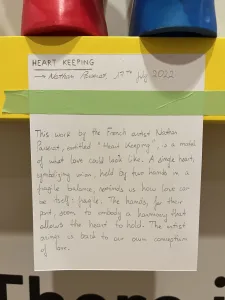 HEART KEEPING
→ Nathan Pauvriot, 17TH July 2022
This work by the French artist Nathan
Pauvriot, entitled "Heart Keeping", is a model
of what love could look like. A single heart,
symbolizing union, held by two hands in a
fragile balance, reminds us how love can
be itself: fragile. The hands, for their
part, seem to embody a harmony that
allows the heart to hold. The artist
brings us back to our own conception
of love.